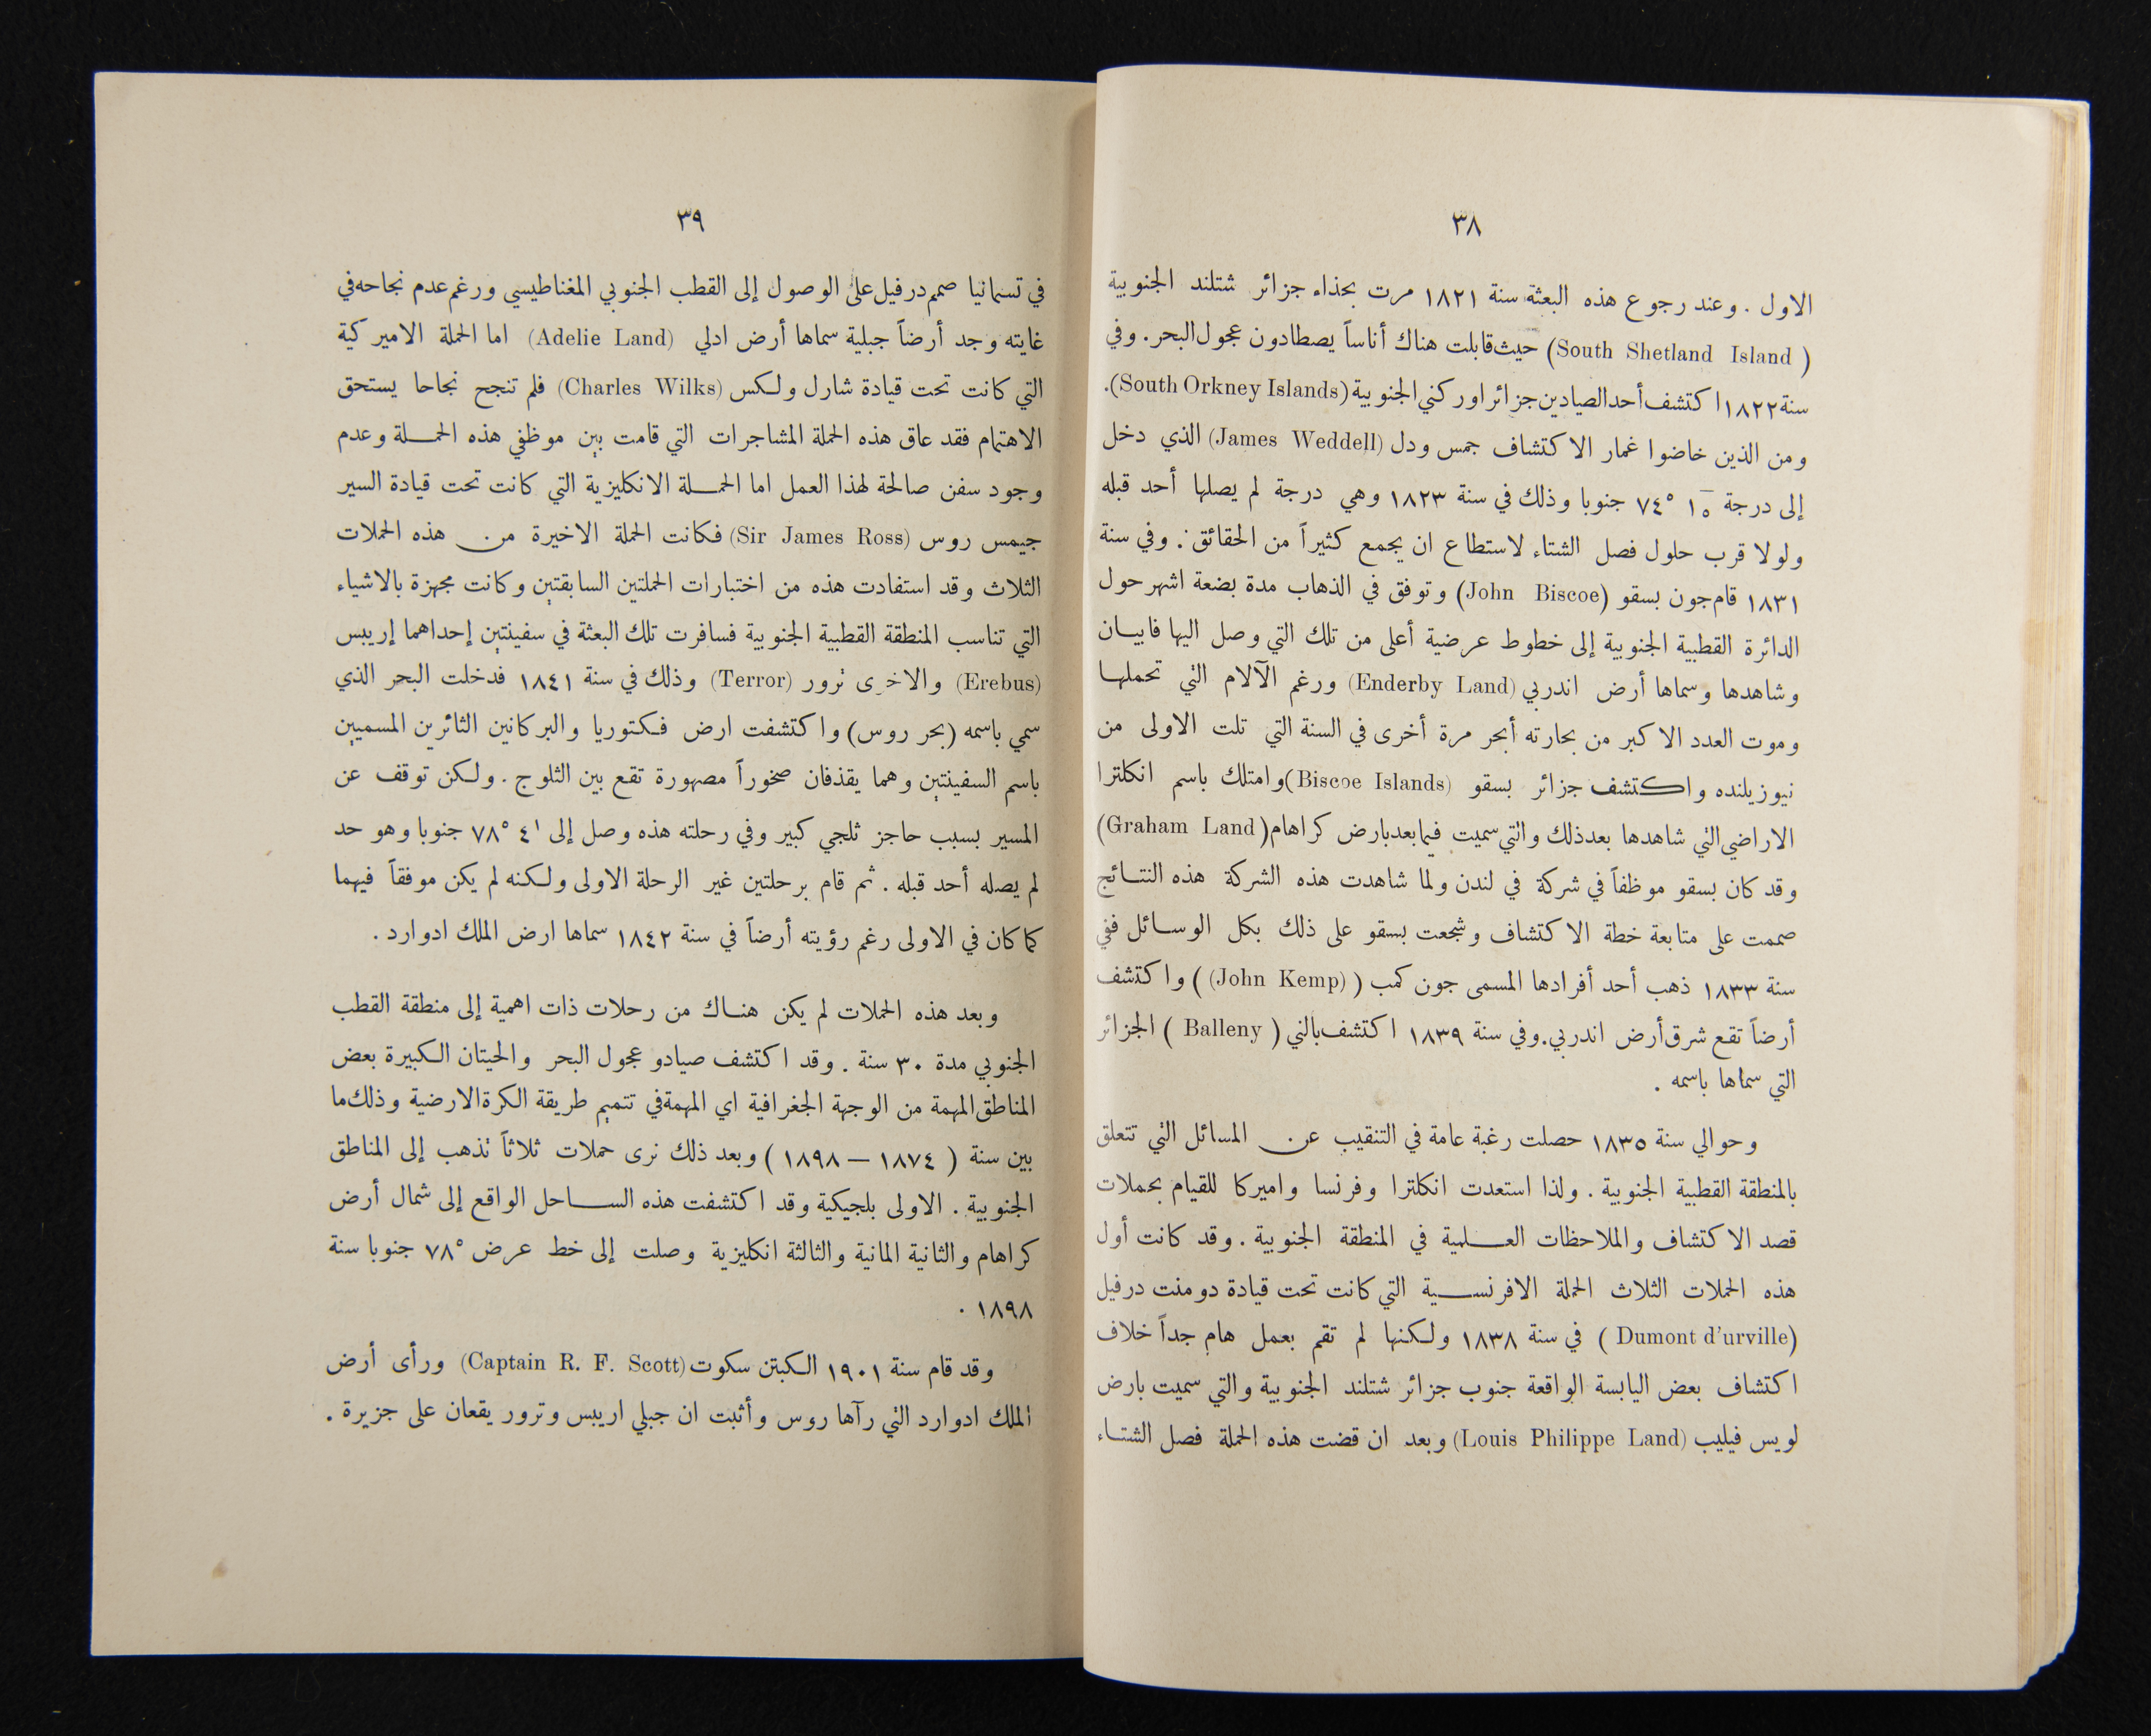 ٣٨
الاول . وعند رجوع هذه البعثة سنة ١٨٢١ مرت بحذاء جزائر شتلند الجنوبية
( South Shetland Island) حيث قابلت هناك أناساً يصطادون عجول البحر. وفي
سنة ١٨٢٢ اكتشف أحد الصيادين جزائر اوركني الجنوبية (South Orkney Islands).
ومن الذين خاضوا غمار الاكتشاف جمس ودل (James Weddell) الذي دخل
إلى درجة ١٥ °٧٤ جنوبا وذلك في سنة ١٨٢٣ وهي درجة لم يصلها أحد قبله
ولولا قرب حلول فصل الشتاء لاستطاع ان يجمع كثيراً من الحقائق . وفي سنة
١٨٣١ قام جون بسقو (John Biscoe) وتوفق في الذهاب مدة بضعة اشهر حول
الدائرة القطبية الجنوبية إلى خطوط عرضية أعلى من تلك التي وصل اليها فابيان
وشاهدها وسماها أرض اندربي (Enderby Land) ورغم الآلام التي تحملها
وموت العدد الاكبر من بحارته أبحر مرة أخرى في السنة التي تلت الاولى من
نيوزيلنده واكتشف جزائر بسقو (Biscoe Islands) وامتلك باسم انكلترا
الاراضي التي شاهدها بعد ذلك والتي سميت فيما بعد بارض كراهام (Graham Land)
وقد كان بسقو موظفاً في شركة في لندن ولما شاهدت هذه الشركة هذه النتائج
صممت على متابعة خطة الاكتشاف وشجعت بسقو على ذلك بكل الوسائل ففي
سنة ١٨٣٣ ذهب أحد أفرادها المسمى جون كمب ( (John Kemp) ) واكتشف
أرضاً تقع شرق أرض اندربي. وفي سنة ١٨٣٩ اكتشف بالني ( Balleny ) الجزائر
التي سماها باسمه .
وحوالي سنة ١٨٣٥ حصلت رغبة عامة في التنقيب عن المسائل التي تتعلق
بالمنطقة القطبية الجنوبية . ولذا استعدت انكلترا وفرنسا واميركا للقيام بحملات
قصد الاكتشاف والملاحظات العلمية في المنطقة الجنوبية . وقد كانت أول
هذه الحملات الثلاث الحملة الافرنسية التي كانت تحت قيادة دومنت درفيل
(Dumont d'urville ) في سنة ١٨٣٨ ولكنها لم تقم بعمل هام جداً خلاف
اكتشاف بعض اليابسة الواقعة جنوب جزائر شتلند الجنوبية والتي سميت بارض
لويس فيليب (Louis Philippe Land) وبعد ان قضت هذه الحملة فصل الشتاء
٣٩
في تسمانيا صمم درفيل على الوصول إلى القطب الجنوبي المغناطيسي ورغم عدم نجاحه في
غايته وجد أرضاً جبلية سماها أرض ادلي (Adelie Land) اما الحملة الاميركية
التي كانت تحت قيادة شارل ولكس (Charles Wilks) فلم تنجح نجاحا يستحق
الاهتمام فقد عاق هذه الحملة المشاجرات التي قامت بين موظفي هذه الحملة وعدم
وجود سفن صالحة لهذا العمل اما الحملة الانكليزية التي كانت تحت قيادة السير
جيمس روس (Sir James Ross) فكانت الحملة الاخيرة من هذه الحملات
الثلاث وقد استفادت هذه من اختبارات الحملتين السابقتين وكانت مجهزة بالاشياء
التي تناسب المنطقة القطبية الجنوبية فسافرت تلك البعثة في سفينتين إحداهما إريبس
(Erebus) والاخرى ترور (Terror) وذلك في سنة ١٨٤١ فدخلت البحر الذي
سمي باسمه (بحر روس) واكتشفت ارض فكتوريا والبركانين الثائرين المسميين
باسم السفينتين وهما يقذفان صخوراً مصهورة تقع بين الثلوج . ولكن توقف عن
المسير بسبب حاجز ثلجي كبير وفي رحلته هذه وصل إلى ٤' °٧٨ جنوبا وهو حد
لم يصله أحد قبله . ثم قام برحلتين غير الرحلة الاولى ولكنه لم يكن موفقاً فيهما
كما كان في الاولى رغم رؤيته أرضاً في سنة ١٨٤٢ سماها ارض الملك ادوارد .
وبعد هذه الحملات لم يكن هناك من رحلات ذات اهمية إلى منطقة القطب
الجنوبي مدة ٣٠ سنة . وقد اكتشف صيادو عجول البحر والحيتان الكبيرة بعض
المناطق المهمة من الوجهة الجغرافية اي المهمة في تتميم طريقة الكرة الارضية وذلك ما
بين سنة ( ١٨٧٤ — ١٨٩٨ ) وبعد ذلك نرى حملات ثلاثاً تذهب إلى المناطق
الجنوبية . الاولى بلجيكية وقد اكتشفت هذه الساحل الواقع إلى شمال أرض
كراهام والثانية المانية والثالثة انكليزية وصلت إلى خط عرض °٧٨ جنوبا سنة
١٨٩٨ .
وقد قام سنة ١٩٠١ الكبتن سكوت (Captain R. F. Scott) ورأى أرض
الملك ادوارد التي رآها روس وأثبت ان جبلي اريبس وترور يقعان على جزيرة .